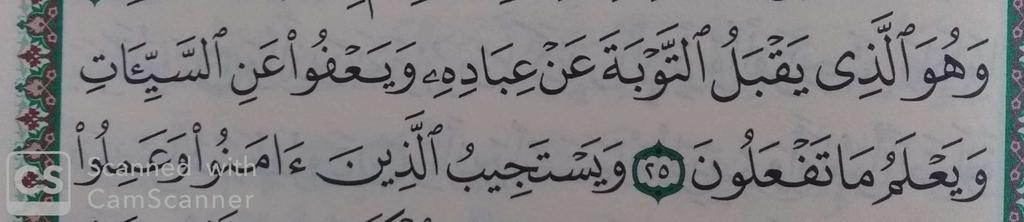 وَهُوَ ٱلَّذِى يَقْبَلُ ٱلتَّوْبَةَ عَنْ عِبَادِهِۦ وَيَعْفُوا۟ عَنِ ٱلسَّيِّـَٔاتِ
وَيَعْلَمُ مَا تَفْعَلُونَ ٢٥ وَيَسْتَجِيبُ ٱلَّذِينَ ءَامَنُوا۟ وَعَمِلُوا۟
CS Scanned with
CamScanner